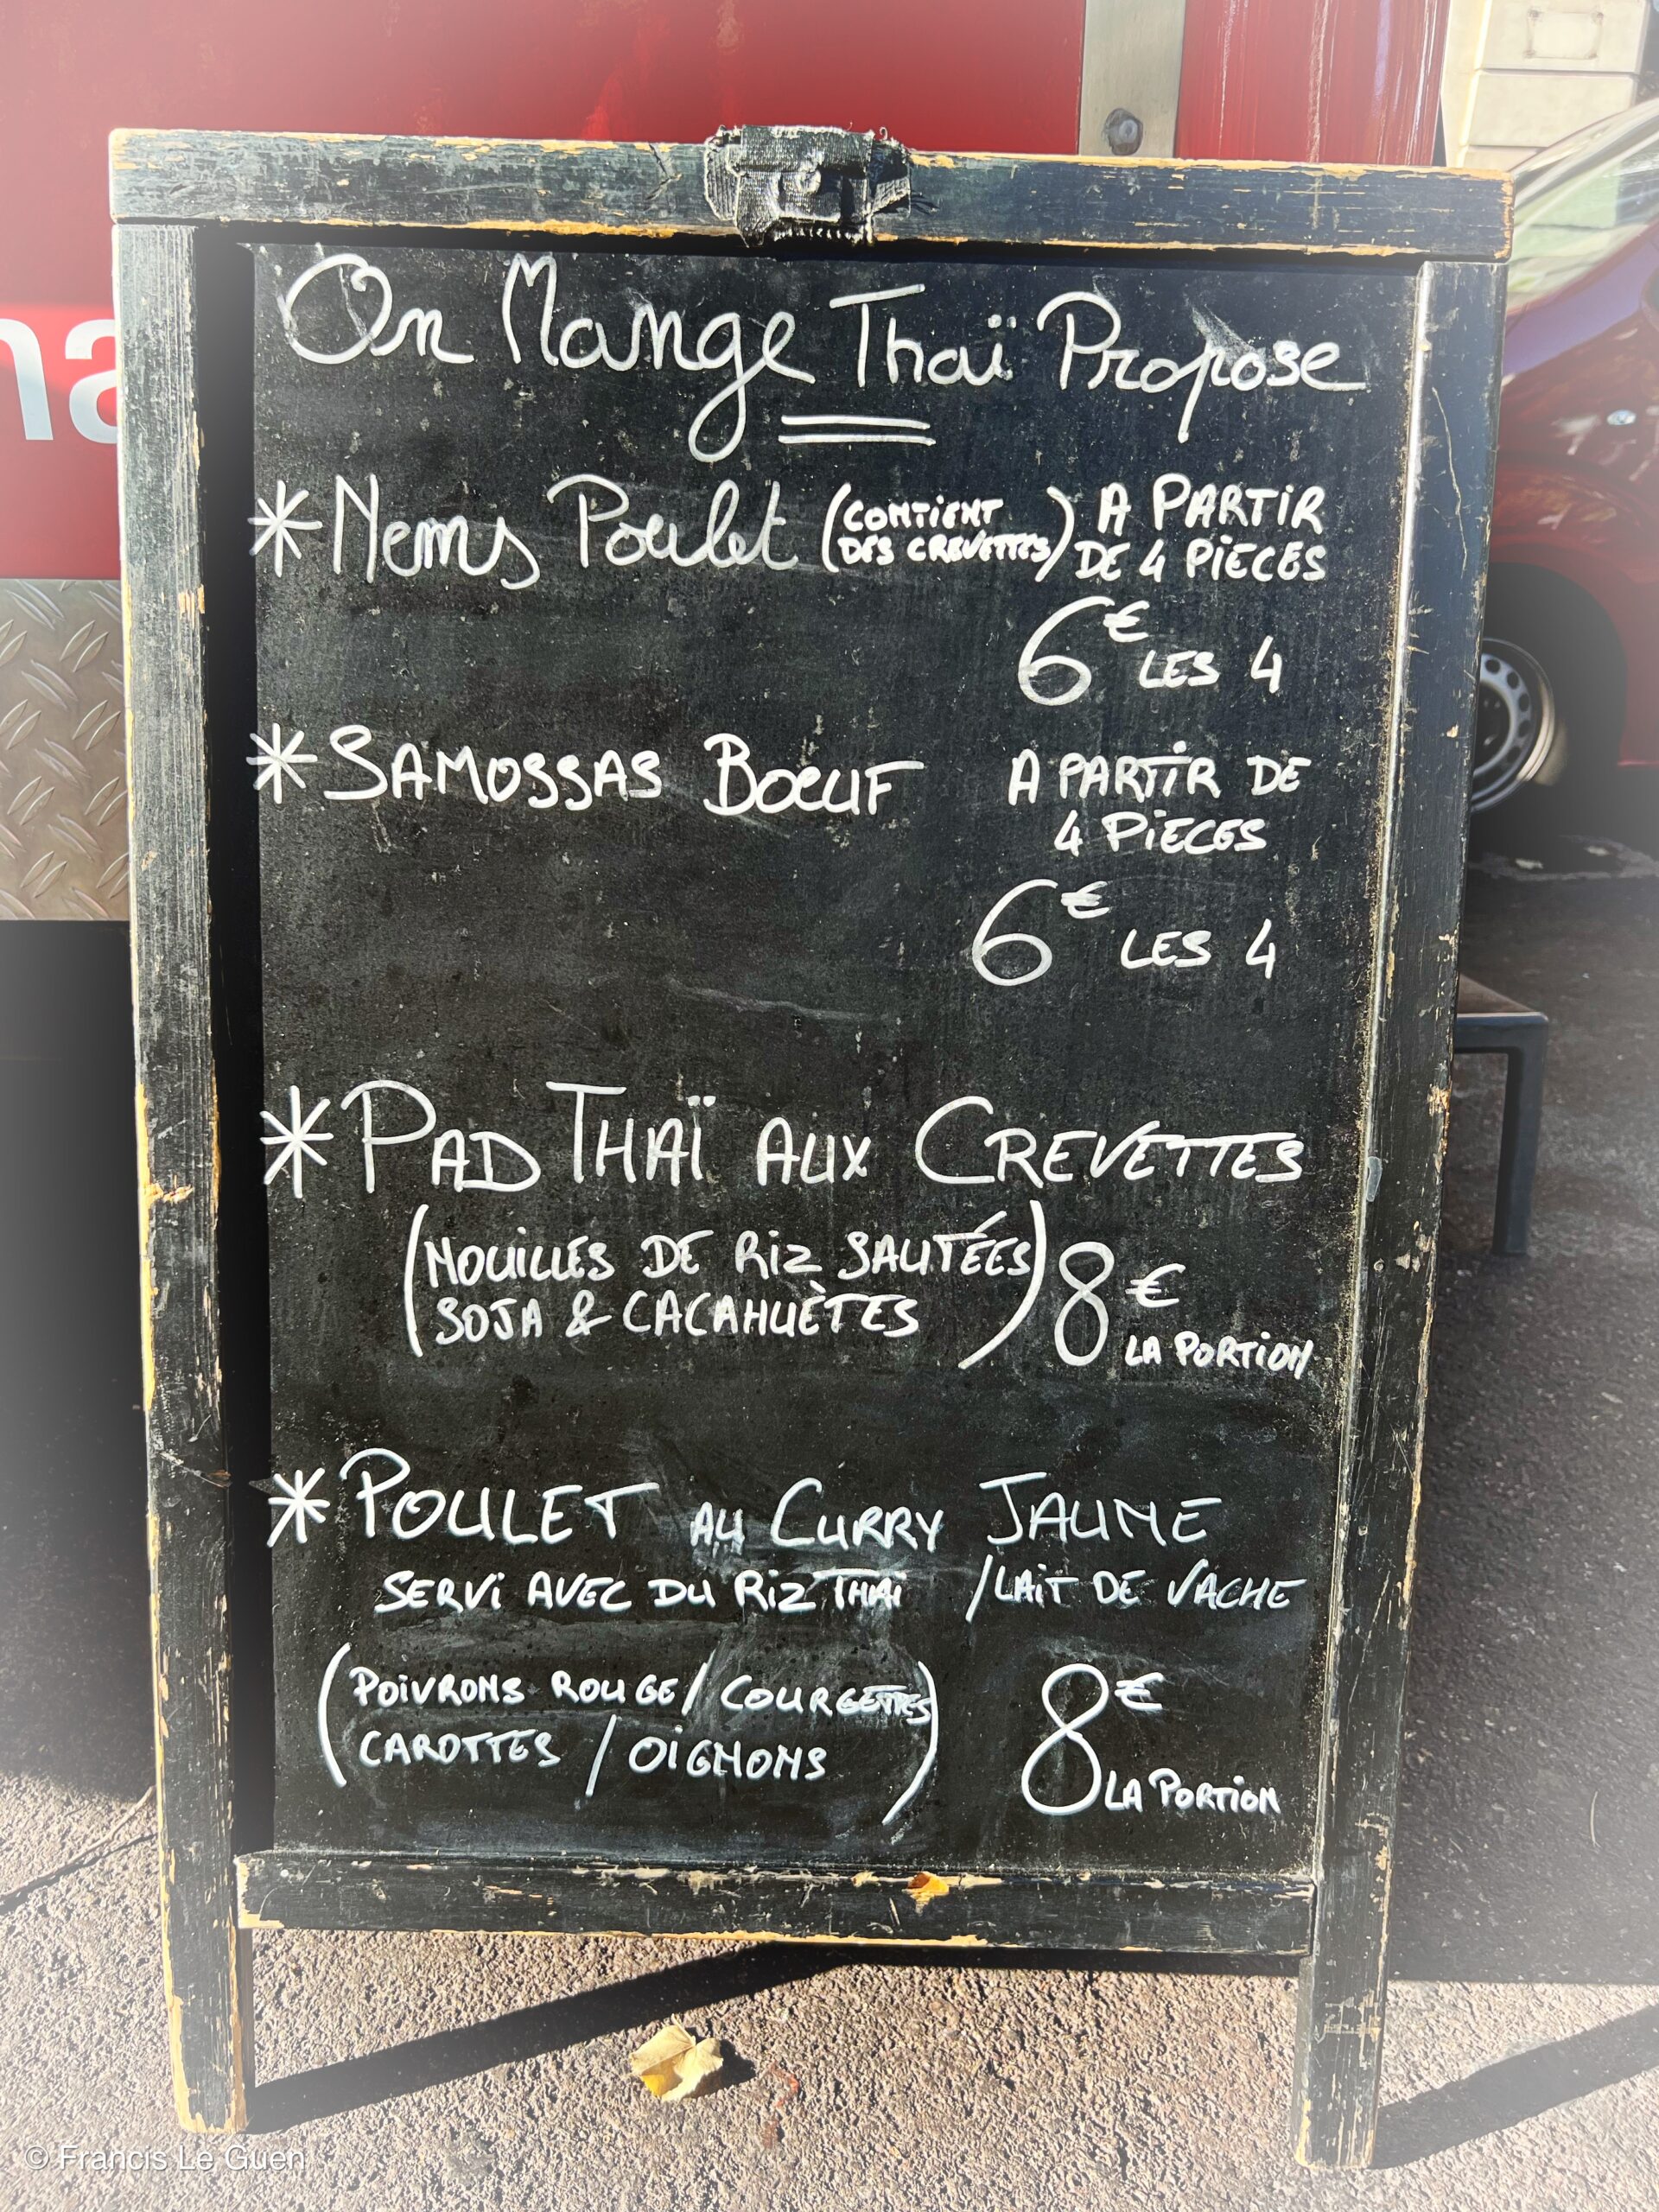 na
On Mange Thaï Propose
* Nems Poulet (CONTIENT DES CREVETTES) A PARTIR DE 4 PIECES
6€ LES 4
* SAMOSSAS BOEUF A PARTIR DE 4 PIECES
6€ LES 4
* PAD THAÏ AUX CREVETTES
(NOUILLES DE RIZ SAUTÉES
SOJA & CACAHUÈTES) 8€ LA PORTION
* POULET AU CURRY JAUNE
SERVI AVEC DU RIZ THAI /LAIT DE VACHE
(POIVRONS ROUGE/ COURGETTES
CAROTTES / OIGNONS) 8€ LA PORTION
© Francis Le Guen